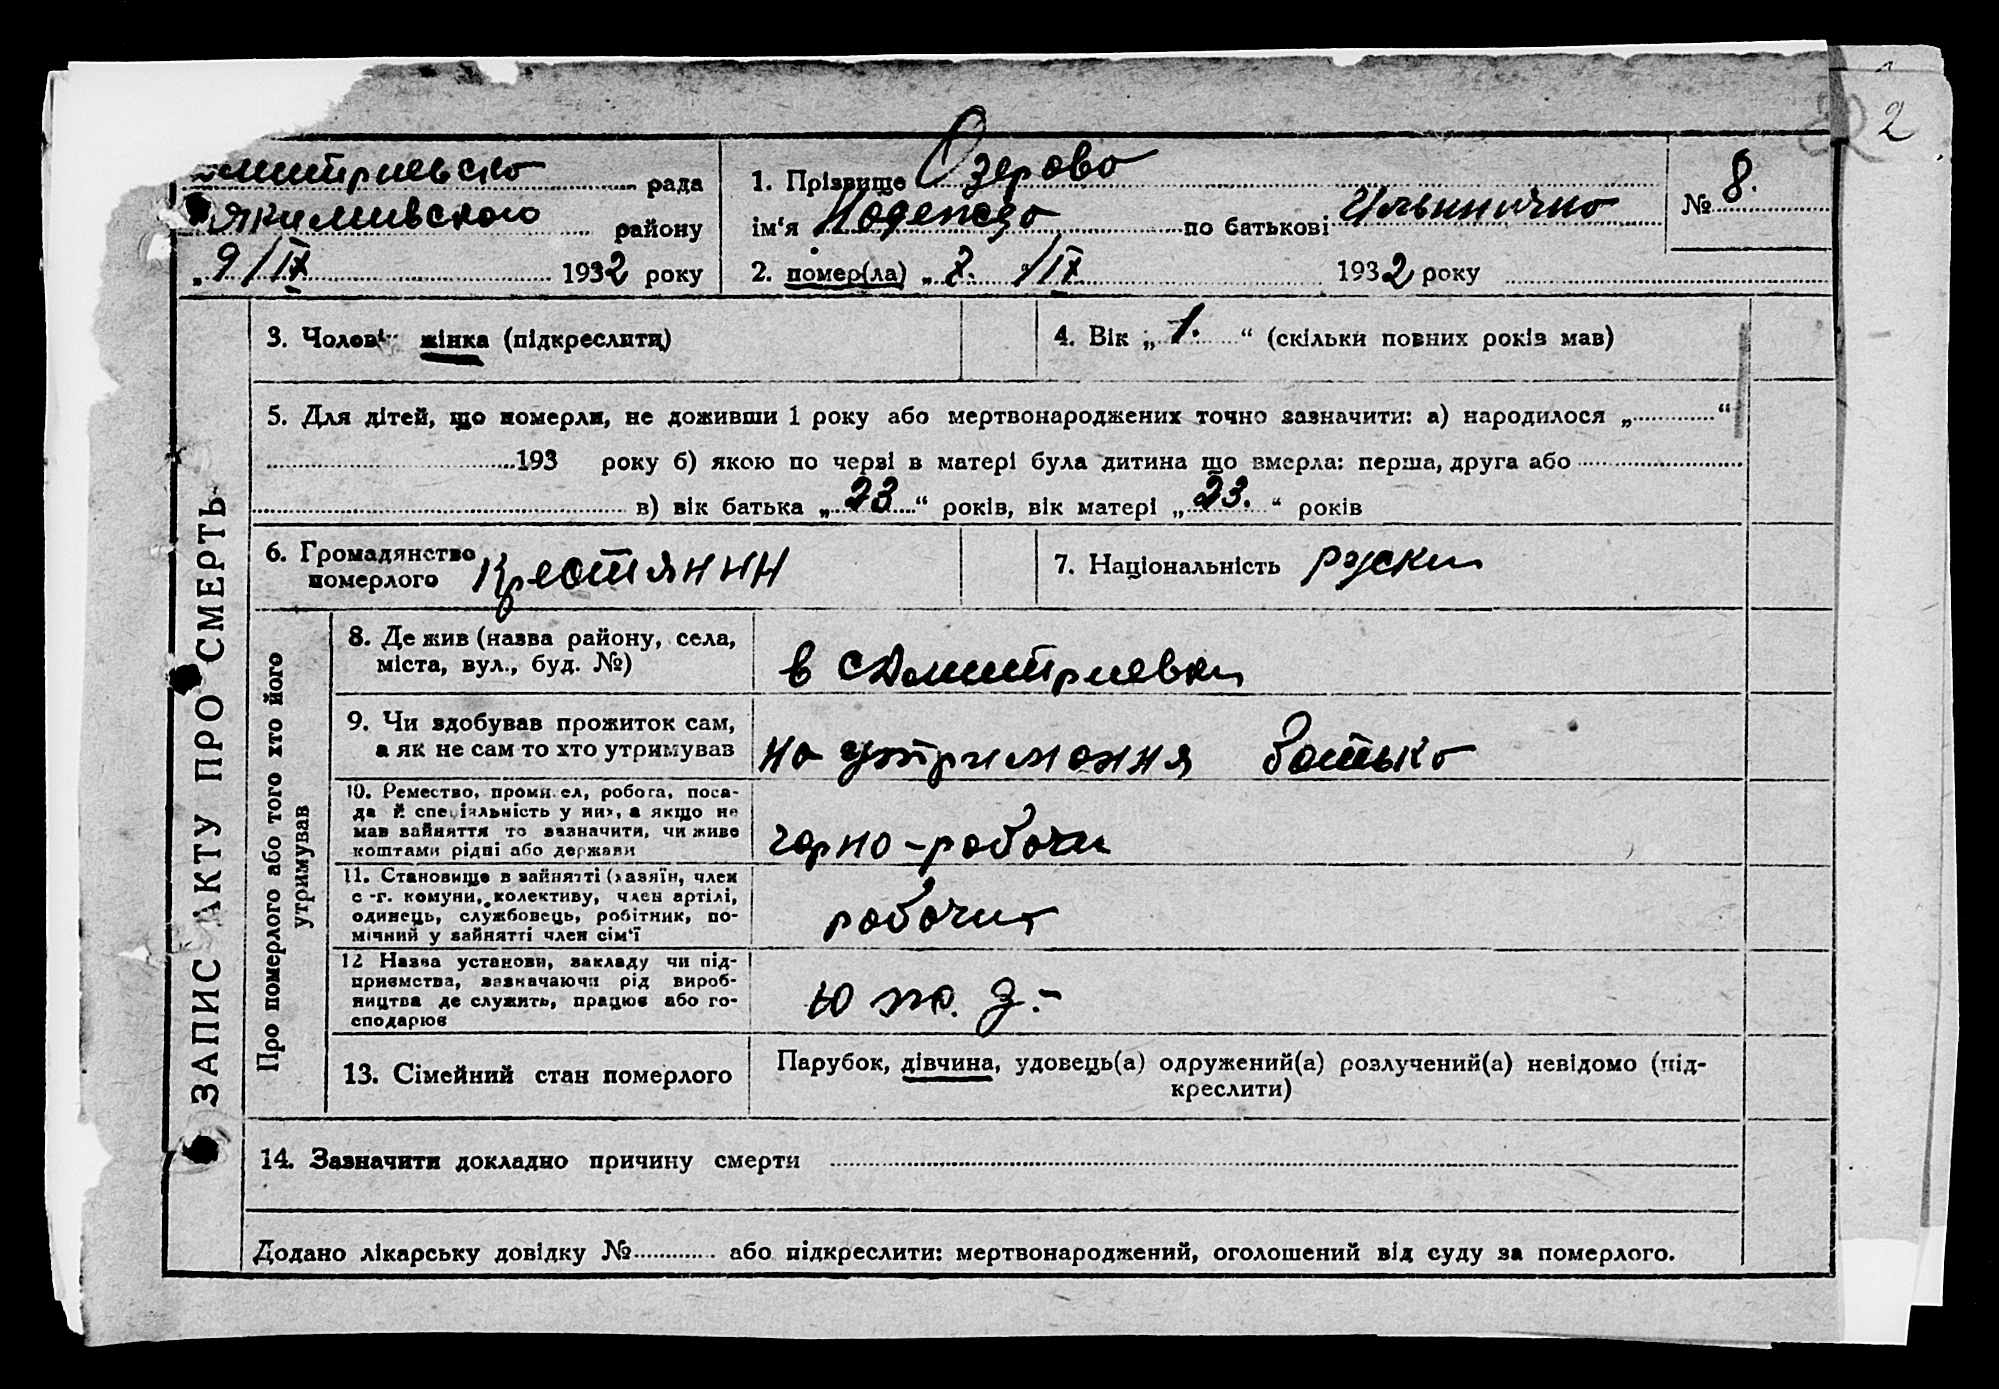 2
митриевско рада
Якимивского району
„ 9/IX 1932 року
1. Прізвище Озерова
ім'я Надежда по батькові Ильинична
2. помер(ла) „ 7. “/IX 1932 року
№ 8.
ЗАПИС АКТУ ПРО СМЕРТЬ
3. Чолові жінка (підкреслити)
4. Вік „ 1. “ (скільки повних років мав)
5. Для дітей, що померли, не доживши 1 року або мертвонароджених точно зазначити: а) народилося „ “
193 року б) якою по черзі в матері була дитина що вмерла: перша, друга або
в) вік батька „ 23 “ років, вік матері „ 23. “ років
6. Громадянство
померлого Крестянин
7. Національність руски
Про померлого або того хто його
утримував
8. Де жив (назва району, села,
міста, вул., буд. №)
в с Дмитриевки
9. Чи здобував прожиток сам,
а як не сам то хто утримував
на утримання батька
10. Ремество, промисел, робота, поса-
да й спеціяльність у них, а якщо не
мав зайняття то зазначити, чи живе
коштами рідні або держави
чорно-рабочи
11. Становище в зайнятті (хазяїн, член
с.-г. комуни, колективу, член артілі,
одинець, службовець, робітник, по-
мічний у зайнятті член сім'ї
рабочит
12 Назва установи, закладу чи під-
приємства, зазначаючи рід вироб-
ництва де служить, працює або го-
сподарює
13. Сімейний стан померлого
Парубок, дівчина, удовець(а) одружений(а) розлучений(а) невідомо (під-
креслити)
14. Зазначити докладно причину смерти
Додано лікарську довідку № або підкреслити: мертвонароджений, оголошений від суду за померлого.